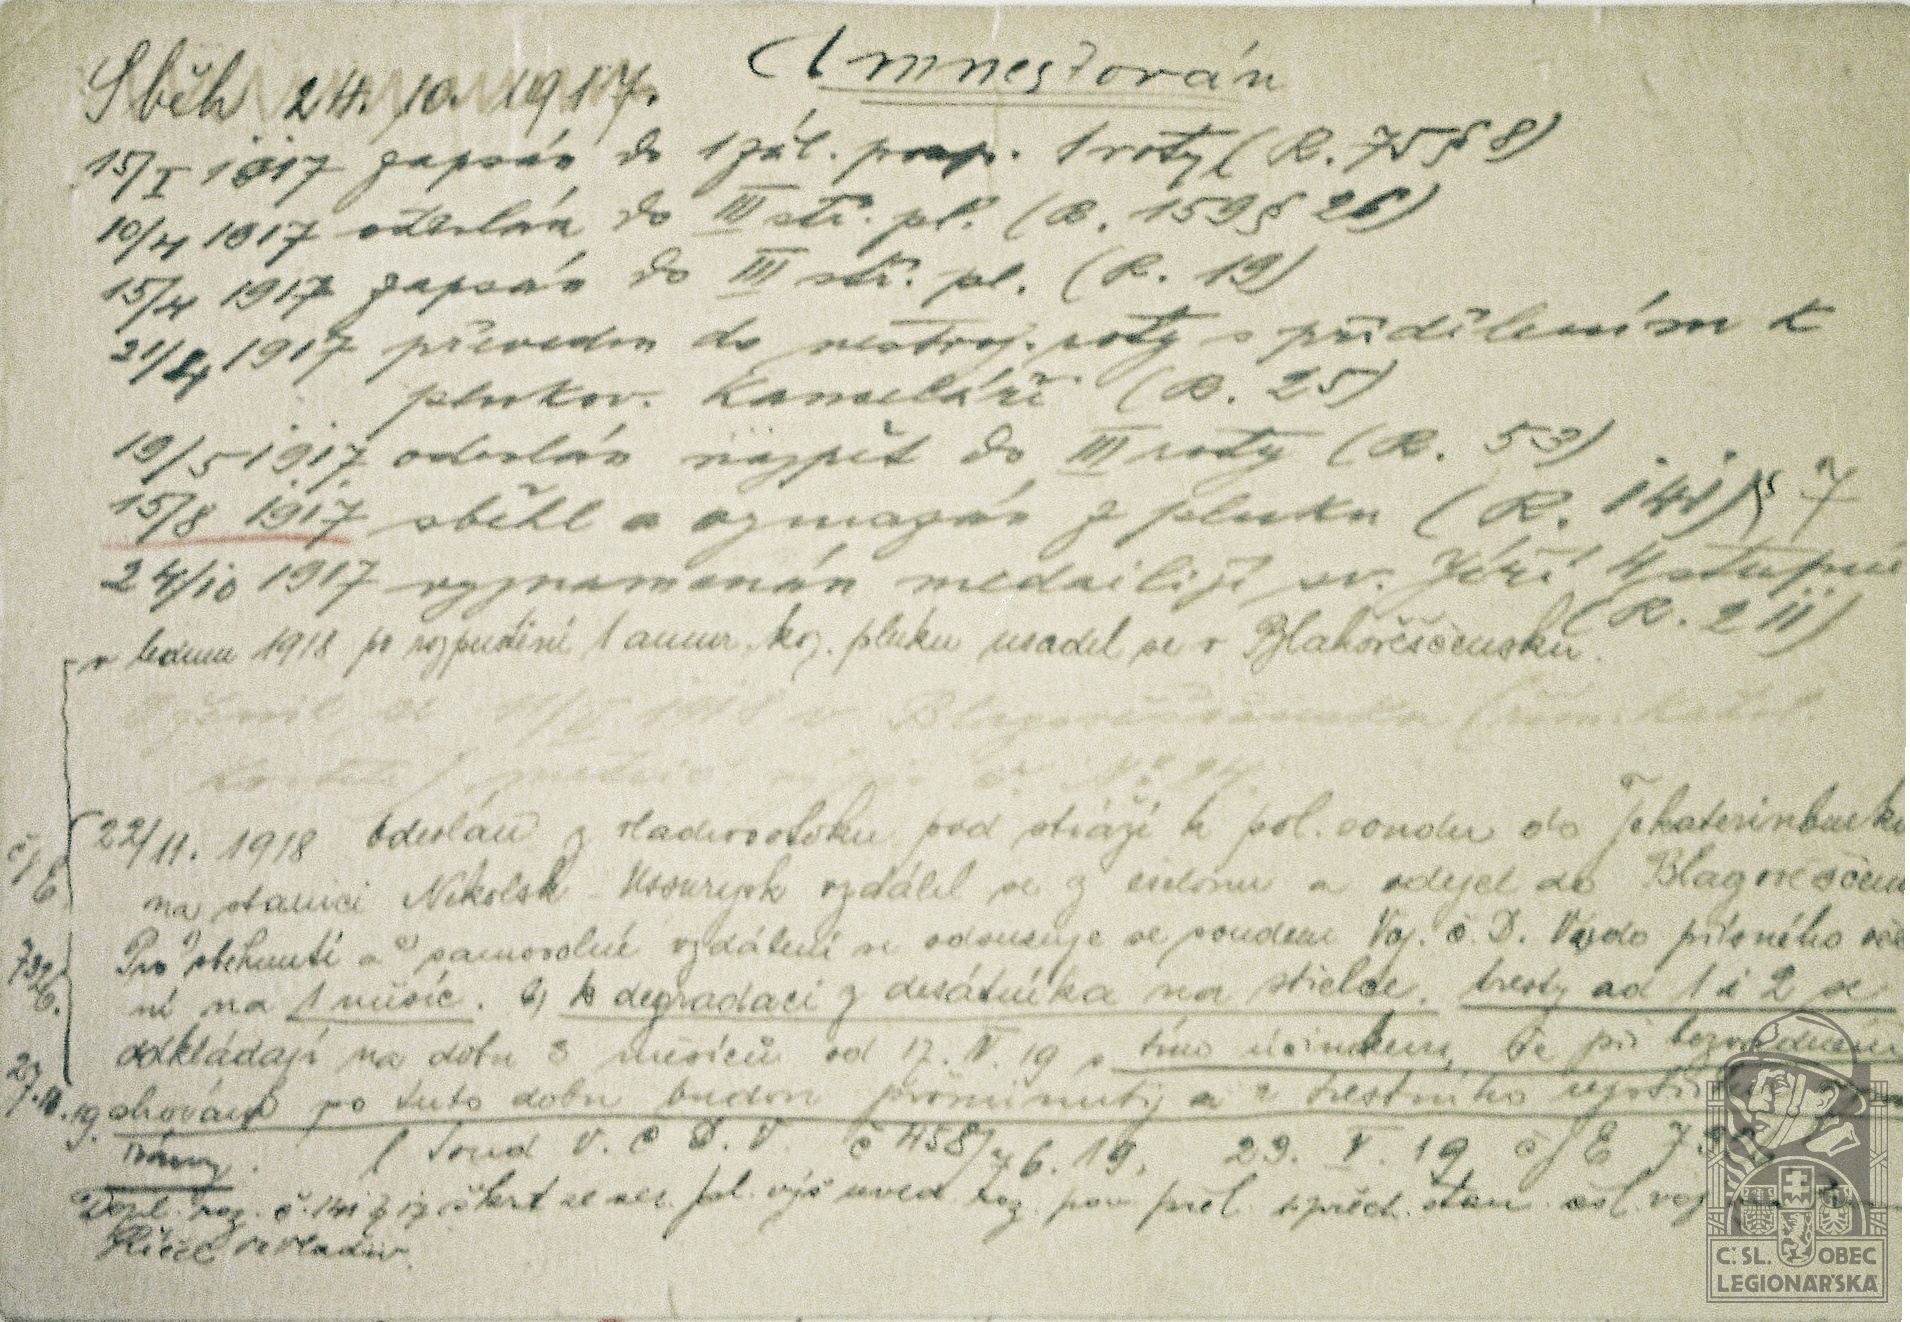 Sběh 24. 10. 1917. Amnestován
15/I 1917 zapsán do 1 zál. prap. 1 roty (R. 75 § 8)
10/4 1917 odeslán do III stř. pl. (R. 159 § 26)
15/4 1917 zapsán do III stř. pl. (R. 19)
21/4 1917 převeden do nestroj. roty s přidělením k
plukov. kanceláři (R. 25)
19/5 1917 odeslán nazpět do III roty (R. 53)
15/8 1917 sběhl a vymazán z pluku (R. 141) § 7
24/10 1917 vyznamenán medailijí sv. Jiří 4 stupně
(R. 211)
v lednu 1918 po rozpuštění 1 amur. koz. pluku usadil se v Blahověščensku.
Oženil se 1918 v Blagověščensku (řím. katol.
22/11. 1918 Odeslán z Vladivostoku pod stráží k pol. soudu do Jekaterinburku
č.j. E na stanici Nikolsk-Ussurijsk vzdálil se z ešelonu a odejel do Blagověščen
Pro 1) sběhnutí a 2) samovolné vzdálení se odsuzuje se soudem Voj. č. D. V. do přísného věz
732 E. ní na 1 měsíc. 2) k degradaci z desátníka na střelce, tresty ad 1 i 2 se
odkládají na dobu 3 měsíců od 17. IV. 19 s tím účinkem, že při bezvadném
27. IV. 19. chování po tuto dobu budou prominuty a z trestního
( Soud V. č D. V. č 458/ 6. 19. 29. V. 19 čj E 732
Dopl. roz. č. 141 § 17 škrt se